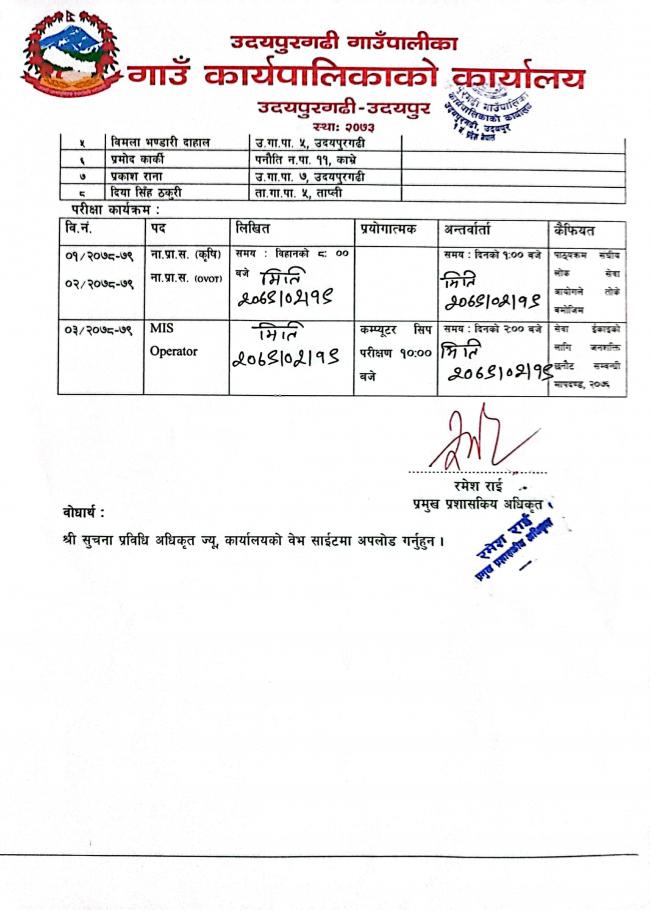 उदयपुरगढी गाउँपालीका
गाउँ कार्यपालिकाको कार्यालय
उदयपुरगढी-उदयपुर
स्थाः २०७३
५ विमला भण्डारी दाहाल उ.गा.पा. ५, उदयपुरगढी
६ प्रमोद कार्की पनौति न.पा. ११, काभ्रे
७ प्रकाश राना उ.गा.पा. ७, उदयपुरगढी
८ दिया सिंह ठकुरी ता.गा.पा. ५, ताप्ली
परीक्षा कार्यक्रम :
वि.नं. पद लिखित प्रयोगात्मक अन्तर्वार्ता कैफियत
०१/२०७८-७९ ना.प्रा.स. (कृषि) समय : विहानको ८: ०० समय : दिनको १:०० बजे पाठ्यक्रम संघीय
०२/२०७८-७९ ना.प्रा.स. (OVOT) बजे मिति मिति लोक सेवा
२०७९।०२।१९ २०७९।०२।१९ आयोगले तोके
बमोजिम
०३/२०७८-७९ MIS मिति कम्प्यूटर सिप समय : दिनको २:०० बजे सेवा ईकाइको
Operator २०७९।०२।१९ परीक्षण १०:०० मिति लागि जनशक्ति
बजे २०७९।०२।१९ छनौट सम्बन्धी
मापदण्ड, २०७८
रमेश राई
प्रमुख प्रशासकिय अधिकृत
वोधार्थ :
श्री सुचना प्रविधि अधिकृत ज्यू, कार्यालयको वेभ साईटमा अपलोड गर्नुहुन ।
रमेश राई
प्रमुख प्रशासकीय अधिकृत